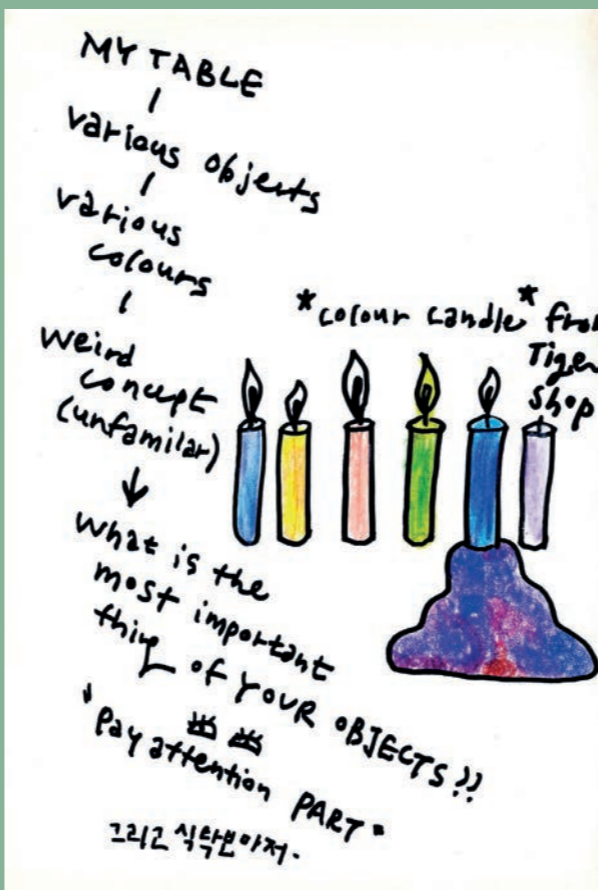 MY TABLE
various objects
various
colours
weird
concept
(unfamilar)
What is the
most important
thing of YOUR OBJECTS!!
"Pay attention PART"
그리고
*colour candle* from
Tiger
shop